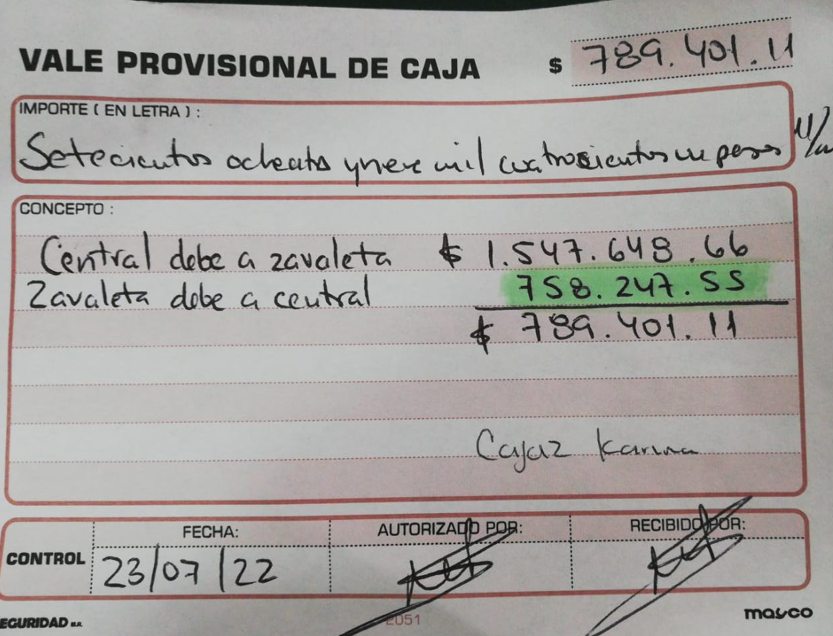 VALE PROVISIONAL DE CAJA $ 789.401.11
IMPORTE ( EN LETRA ) :
Setecientos ochenta y nueve mil cuatrosientos un pesos 11/
CONCEPTO :
Central debe a zavaleta $ 1.547.648.66
Zavaleta debe a central 758.247.55
$ 789.401.11
Caja2 Karina
CONTROL
FECHA: AUTORIZADO POR: RECIBIDO POR:
23/07/22
EGURIDAD M.R. 2051 masco